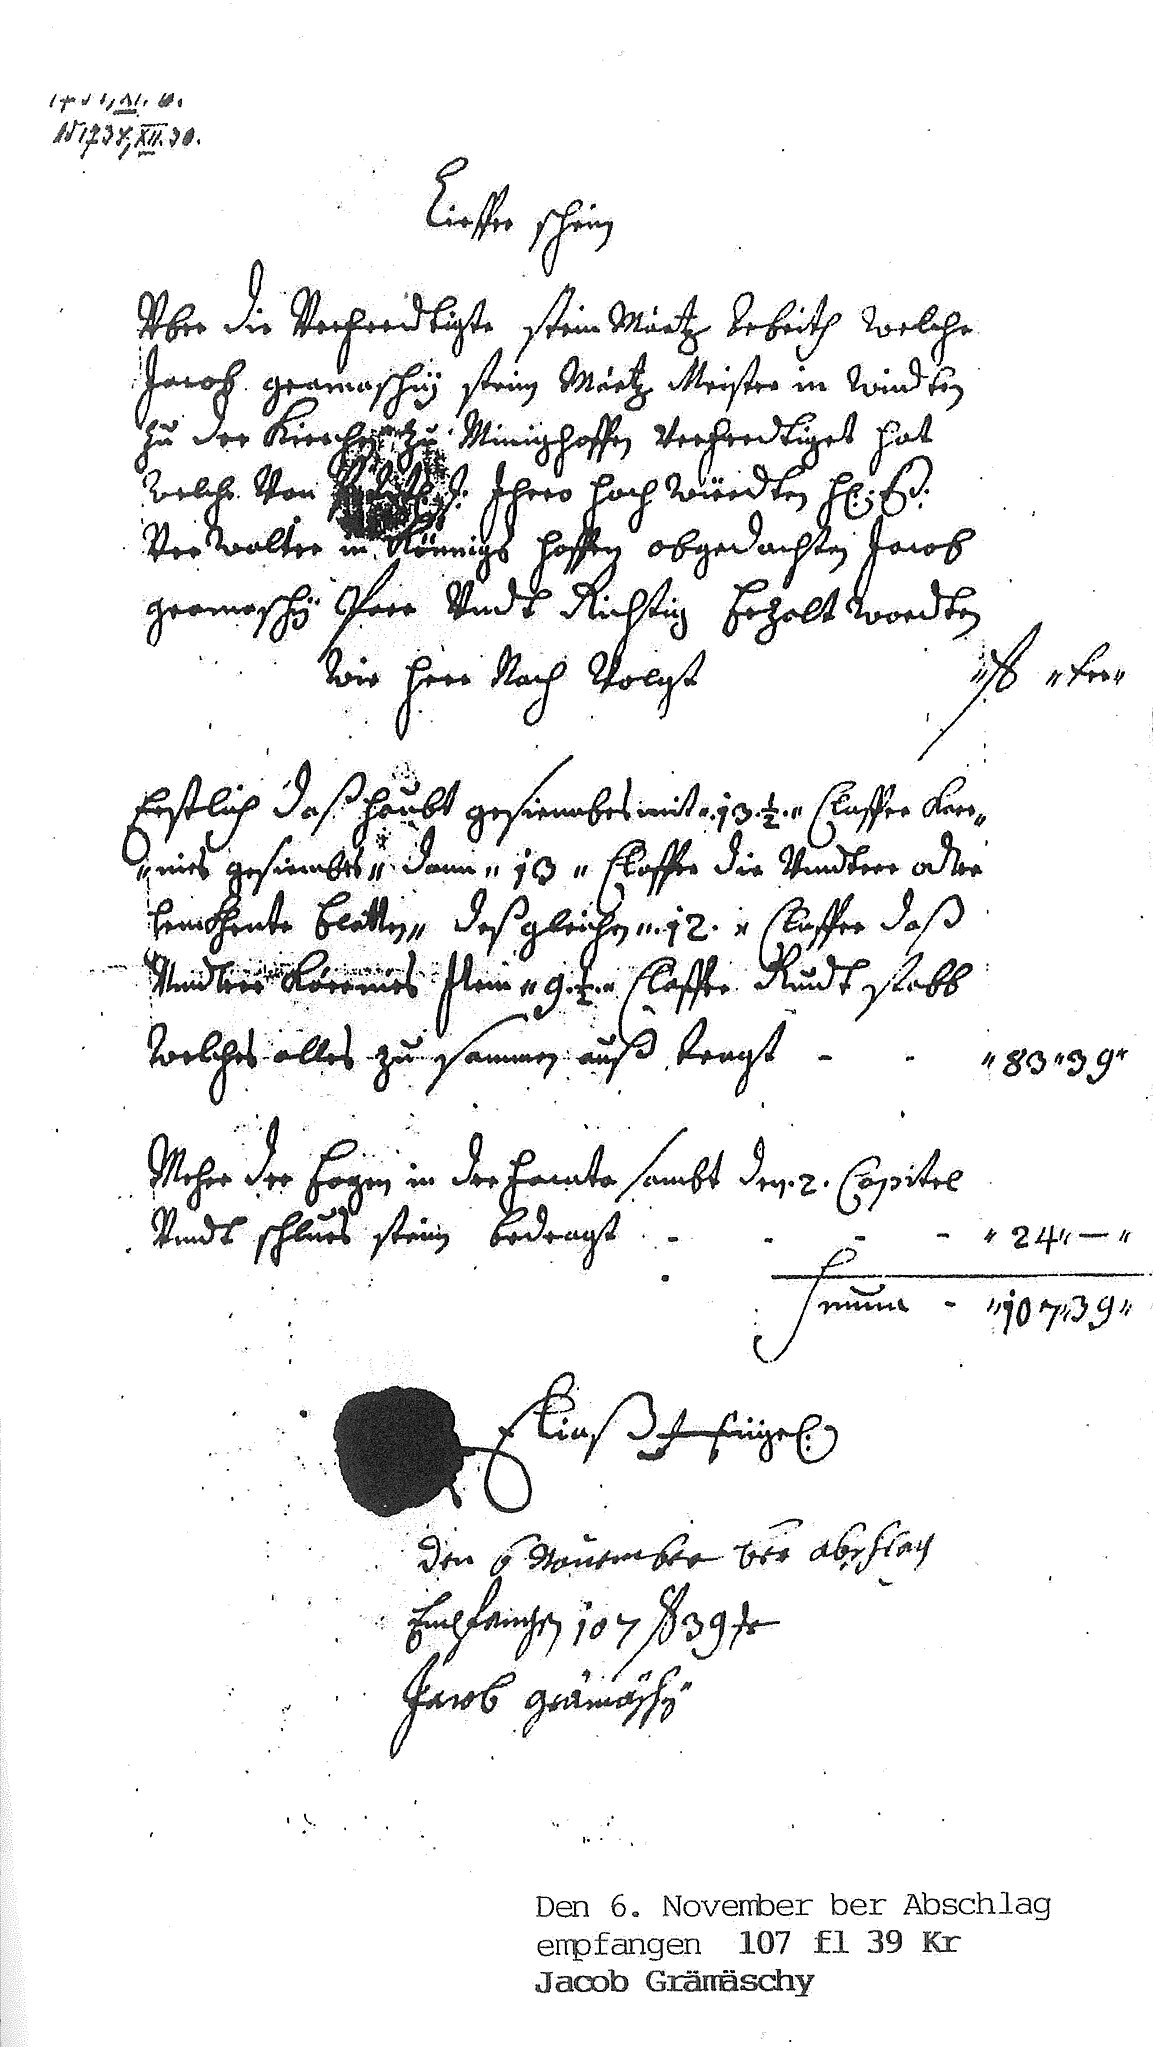 1734, XII. 30.
Lieffer schein
Vber die Verfeerdtigte stein Maetz Arbeith welche
Jacob gramaschÿ stein Maetz Meister in Windten
zu der Kierchen zu Minighoffen Verfeerdtiget hat
welche Von Jhro hoch würdten
Verwalter in Könnigs hoffen obgedachten Jacob
gramaschÿ Paar Vndt Richtig bezalt wordten
wie hier Nach Volgt "fl "kr"
Erstlich daß haubt gesiembs mit "13 ½" Claffter Kar„
„nies gesiembs" dann "13" Claffter die Vndtere oder
blatten" deßgleichen "12." Claffter daß
Vndtere Karnies stein "9 ½" Claffter Rundt stabb
welches alles zu sammen auß tragt - - "83"39"
Meher der bogen in der facata sambt den 2. Capitel
Vndt schlues stein bedragt - - - - "24"—"
Suma - "107"39"
Eliaß
den 6 November ber abschlag
Empfangen 107 fl 39 kr
Jacob gramäschÿ
Den 6. November ber Abschlag
empfangen 107 fl 39 Kr
Jacob Grämäschy